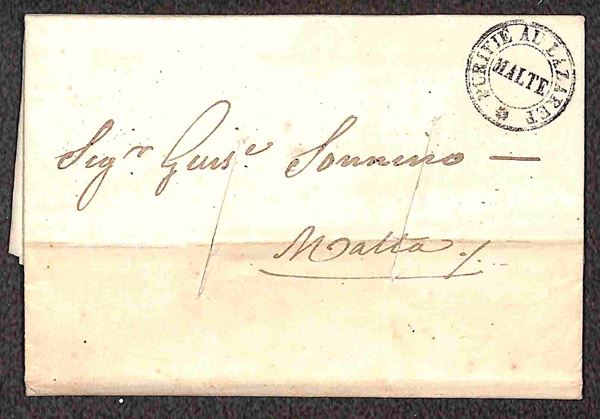 PURIFIÉ AU LAZARET
MALTE
Sigr Guise Sonnino —
Malta